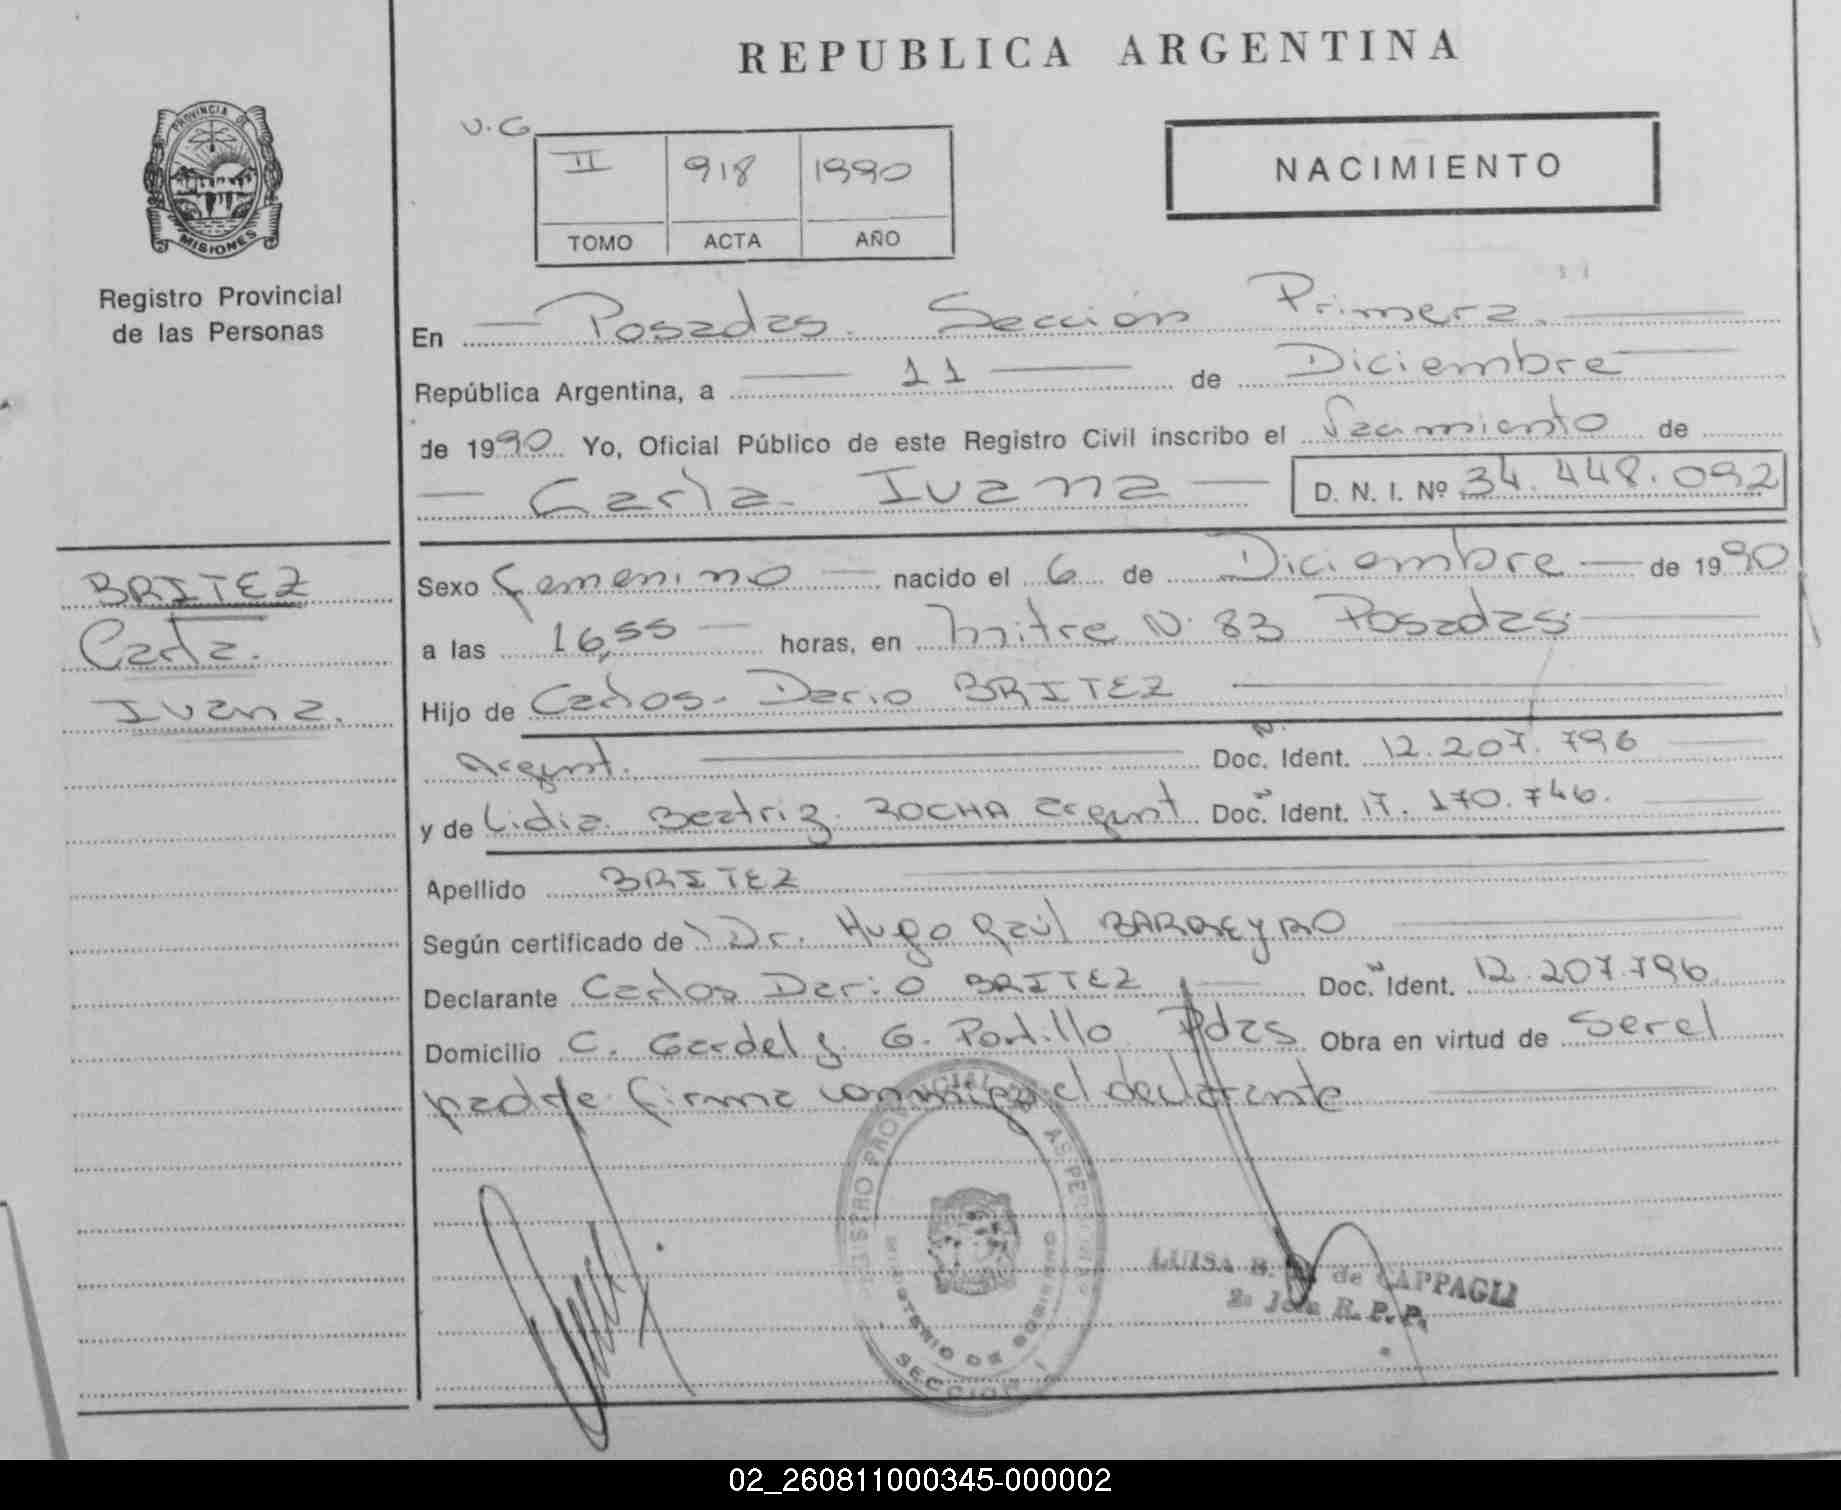 REPUBLICA ARGENTINA
PROVINCIA DE
MISIONES
Registro Provincial
de las Personas
U.G
II 918 1990
TOMO ACTA AÑO
NACIMIENTO
En Posadas. Sección Primera.
República Argentina, a 11 de Diciembre
de 1990 Yo, Oficial Público de este Registro Civil inscribo el Nacimiento de
Carla Ivana D. N. I. Nº 34.448.092
BRITEZ
Carla.
Ivana.
Sexo femenino nacido el 6 de Diciembre de 1990
a las 16,55 horas, en Mitre N. 83 Posadas.
Hijo de Carlos Dario BRITEZ
Argent. Doc. N. Ident. 12.207.796
y de Lidia Beatriz ROCHA argent Doc. N Ident. 17.170.746.
Apellido BRITEZ
Según certificado de Dr. Hugo Raúl BARREYRO
Declarante Carlos Dario BRITEZ Doc. N Ident. 12.207.796
Domicilio C. Gardel y G. Portillo Pdas Obra en virtud de Ser el
padre firma conmigo el declarante
REGISTRO PROVINCIAL DE LAS PERSONAS
MINISTERIO DE GOBIERNO
SECCION 1
LUISA B. de CAPPAGLI
2ª Jefa R. P. P.
02_260811000345-000002